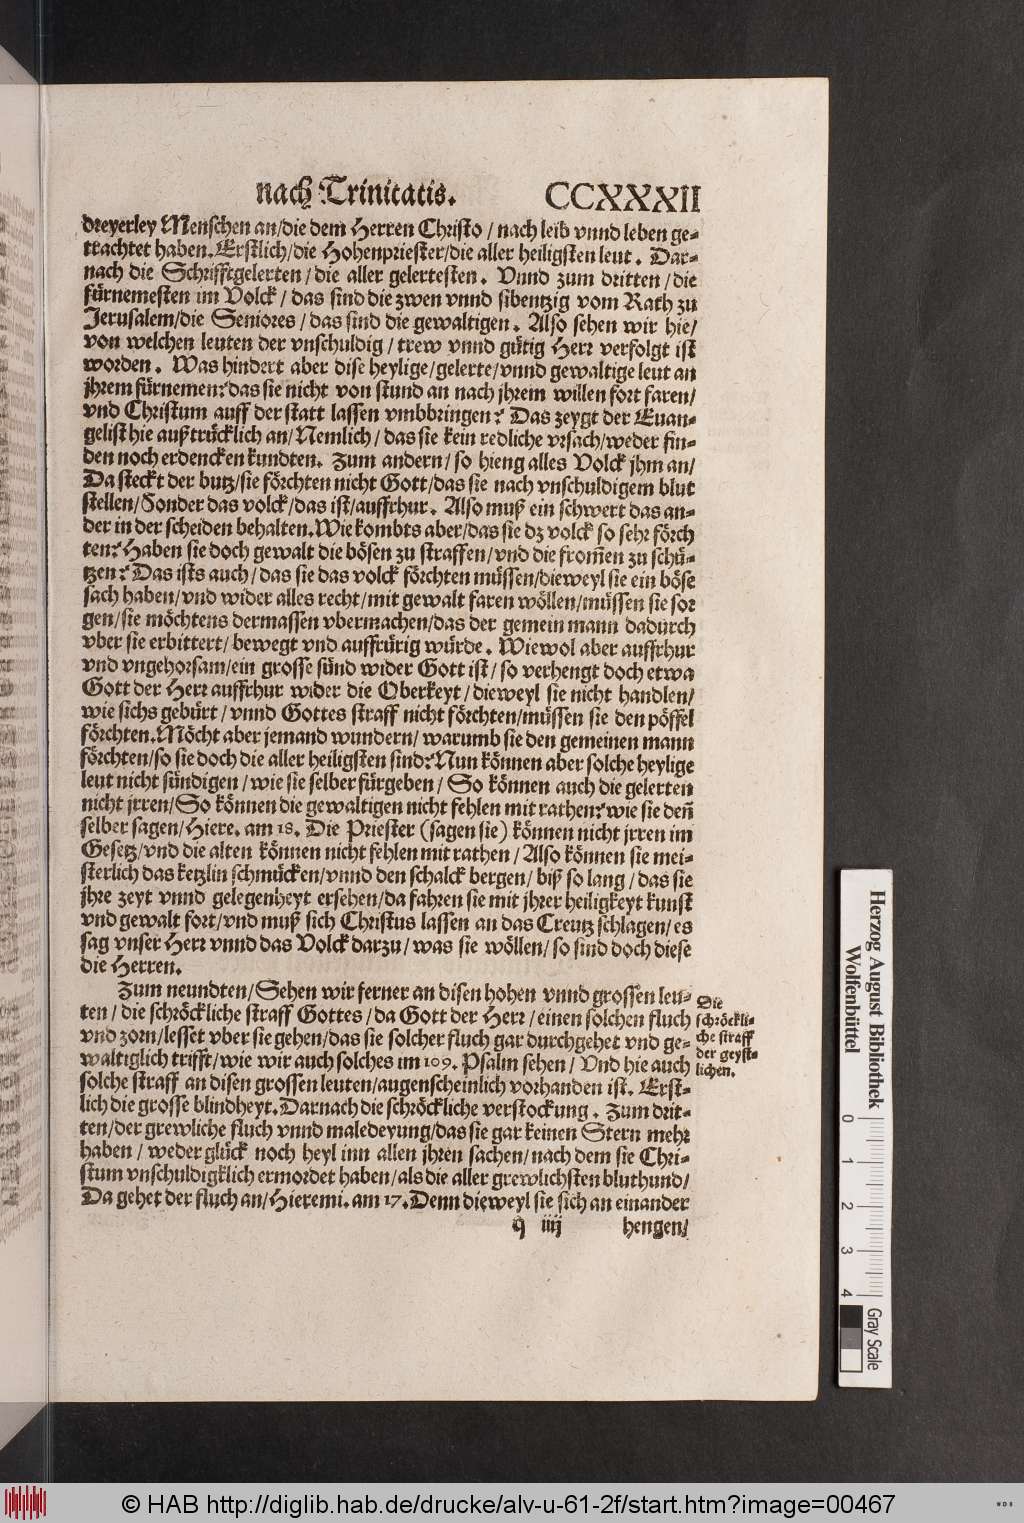 nach Trinitatis. CCXXXII
dreyerley Menschen an/die dem Herren Christo / nach leib vnnd leben ge-
trachtet haben. Erstlich/die Hohenpriester/die aller heiligsten leut. Dar-
nach die Schrifftgelerten / die aller gelertesten. Vnnd zum dritten / die
fürnemesten im Volck / das sind die zwen vnnd sibentzig vom Rath zu
Jerusalem/die Seniores / das sind die gewaltigen. Also sehen wir hie/
von welchen leuten der vnschuldig / trew vnnd gütig Herr verfolgt ist
worden. Was hindert aber dise heylige/gelerte/vnnd gewaltige leut an
jhrem fürnemen? das sie nicht von stund an nach jhrem willen fort faren/
vnd Christum auff der statt lassen vmbbringen? Das zeygt der Euan-
gelist hie außtrücklich an/Nemlich / das sie kein redliche vrsach/weder fin-
den noch erdencken kundten. Zum andern / so hieng alles Volck jhm an/
Da steckt der butz/sie förchten nicht Gott/das sie nach vnschuldigem blut
stellen/Sonder das volck/das ist/auffrhur. Also muß ein schwert das an-
der in der scheiden behalten. Wie kombts aber/das sie dz volck so sehr förch
ten? Haben sie doch gewalt die bösen zu straffen/vnd die from̃en zu schü-
tzen? Das ists auch/das sie das volck förchten müssen/dieweyl sie ein böse
sach haben/vnd wider alles recht/mit gewalt faren wöllen/müssen sie sor
gen/sie möchtens dermassen vbermachen/das der gemein mann dadurch
vber sie erbittert/bewegt vnd auffrürig würde. Wiewol aber auffrhur
vnd vngehorsam/ein grosse sünd wider Gott ist/so verhengt doch etwa
Gott der Herr auffrhur wider die Oberkeyt/dieweyl sie nicht handlen/
wie sichs gebürt/vnnd Gottes straff nicht förchten/müssen sie den pöffel
förchten. Möcht aber jemand wundern/warumb sie den gemeinen mann
förchten/so sie doch die aller heiligsten sind? Nun können aber solche heylige
leut nicht sündigen / wie sie selber fürgeben / So können auch die gelerten
nicht jrren/So können die gewaltigen nicht fehlen mit rathen? wie sie deñ
selber sagen/Hiere. am 18. Die Priester (sagen sie) können nicht jrren im
Gesetz/vnd die alten können nicht fehlen mit rathen / Also können sie mei-
sterlich das ketzlin schmücken/vnnd den schalck bergen / biß so lang / das sie
jhre zeyt vnnd gelegenheyt ersehen/da fahren sie mit jhrer heiligkeyt kunst
vnd gewalt fort/vnd muß sich Christus lassen an das Creutz schlagen/es
sag vnser Herr vnnd das Volck darzu / was sie wöllen/ so sind doch diese
die Herren.
Zum neundten/Sehen wir ferner an disen hohen vnnd grossen leu-
ten / die schröckliche straff Gottes / da Gott der Herr / einen solchen fluch
vnd zorn/lesset vber sie gehen/das sie solcher fluch gar durchgehet vnd ge-
waltiglich trifft/wie wir auch solches im 109. Psalm sehen / Vnd hie auch
solche straff an disen grossen leuten/augenscheinlich vorhanden ist. Erst-
lich die grosse blindheyt. Darnach die schröckliche verstockung. Zum drit-
ten/der grewliche fluch vnnd maledeyung/das sie gar keinen Stern mehr
haben / weder glück noch heyl inn allen jhren sachen/nach dem sie Chri-
stum vnschuldigklich ermordet haben/als die aller grewlichsten bluthund/
Da gehet der fluch an/Hieremi. am 17. Denn dieweyl sie sich an einander
q iiij hengen/
Die
schröckli-
che straff
der geyst-
lichen.
Herzog August Bibliothek
Wolfenbüttel
0 1 2 3 4
Gray Scale
© HAB http://diglib.hab.de/drucke/alv-u-61-2f/start.htm?image=00467